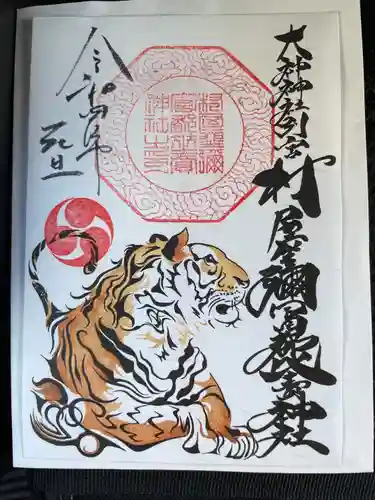 大神神社別宮
村屋坐彌冨都比賣神社
村屋坐彌
冨都比賣
神社之印
令和四年
元旦